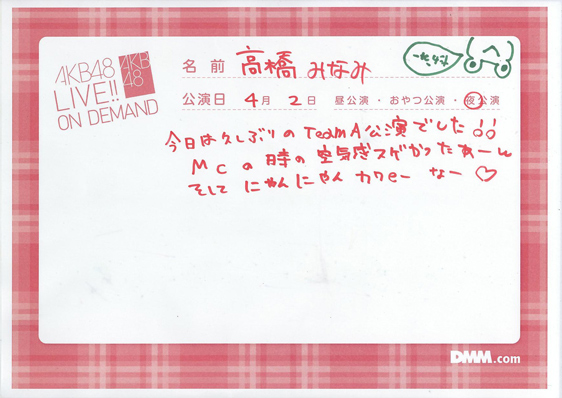 AKB48
LIVE!!
ON DEMAND
AKB
48
名前 高橋みなみ
公演日 4月 2日 昼公演・おやつ公演・夜公演
今日は久しぶりのTeamA公演でした!!
MCの時の空気感スゲかったあーし
そして にゃんにゃん カワe〜 なー♡
DMM.com